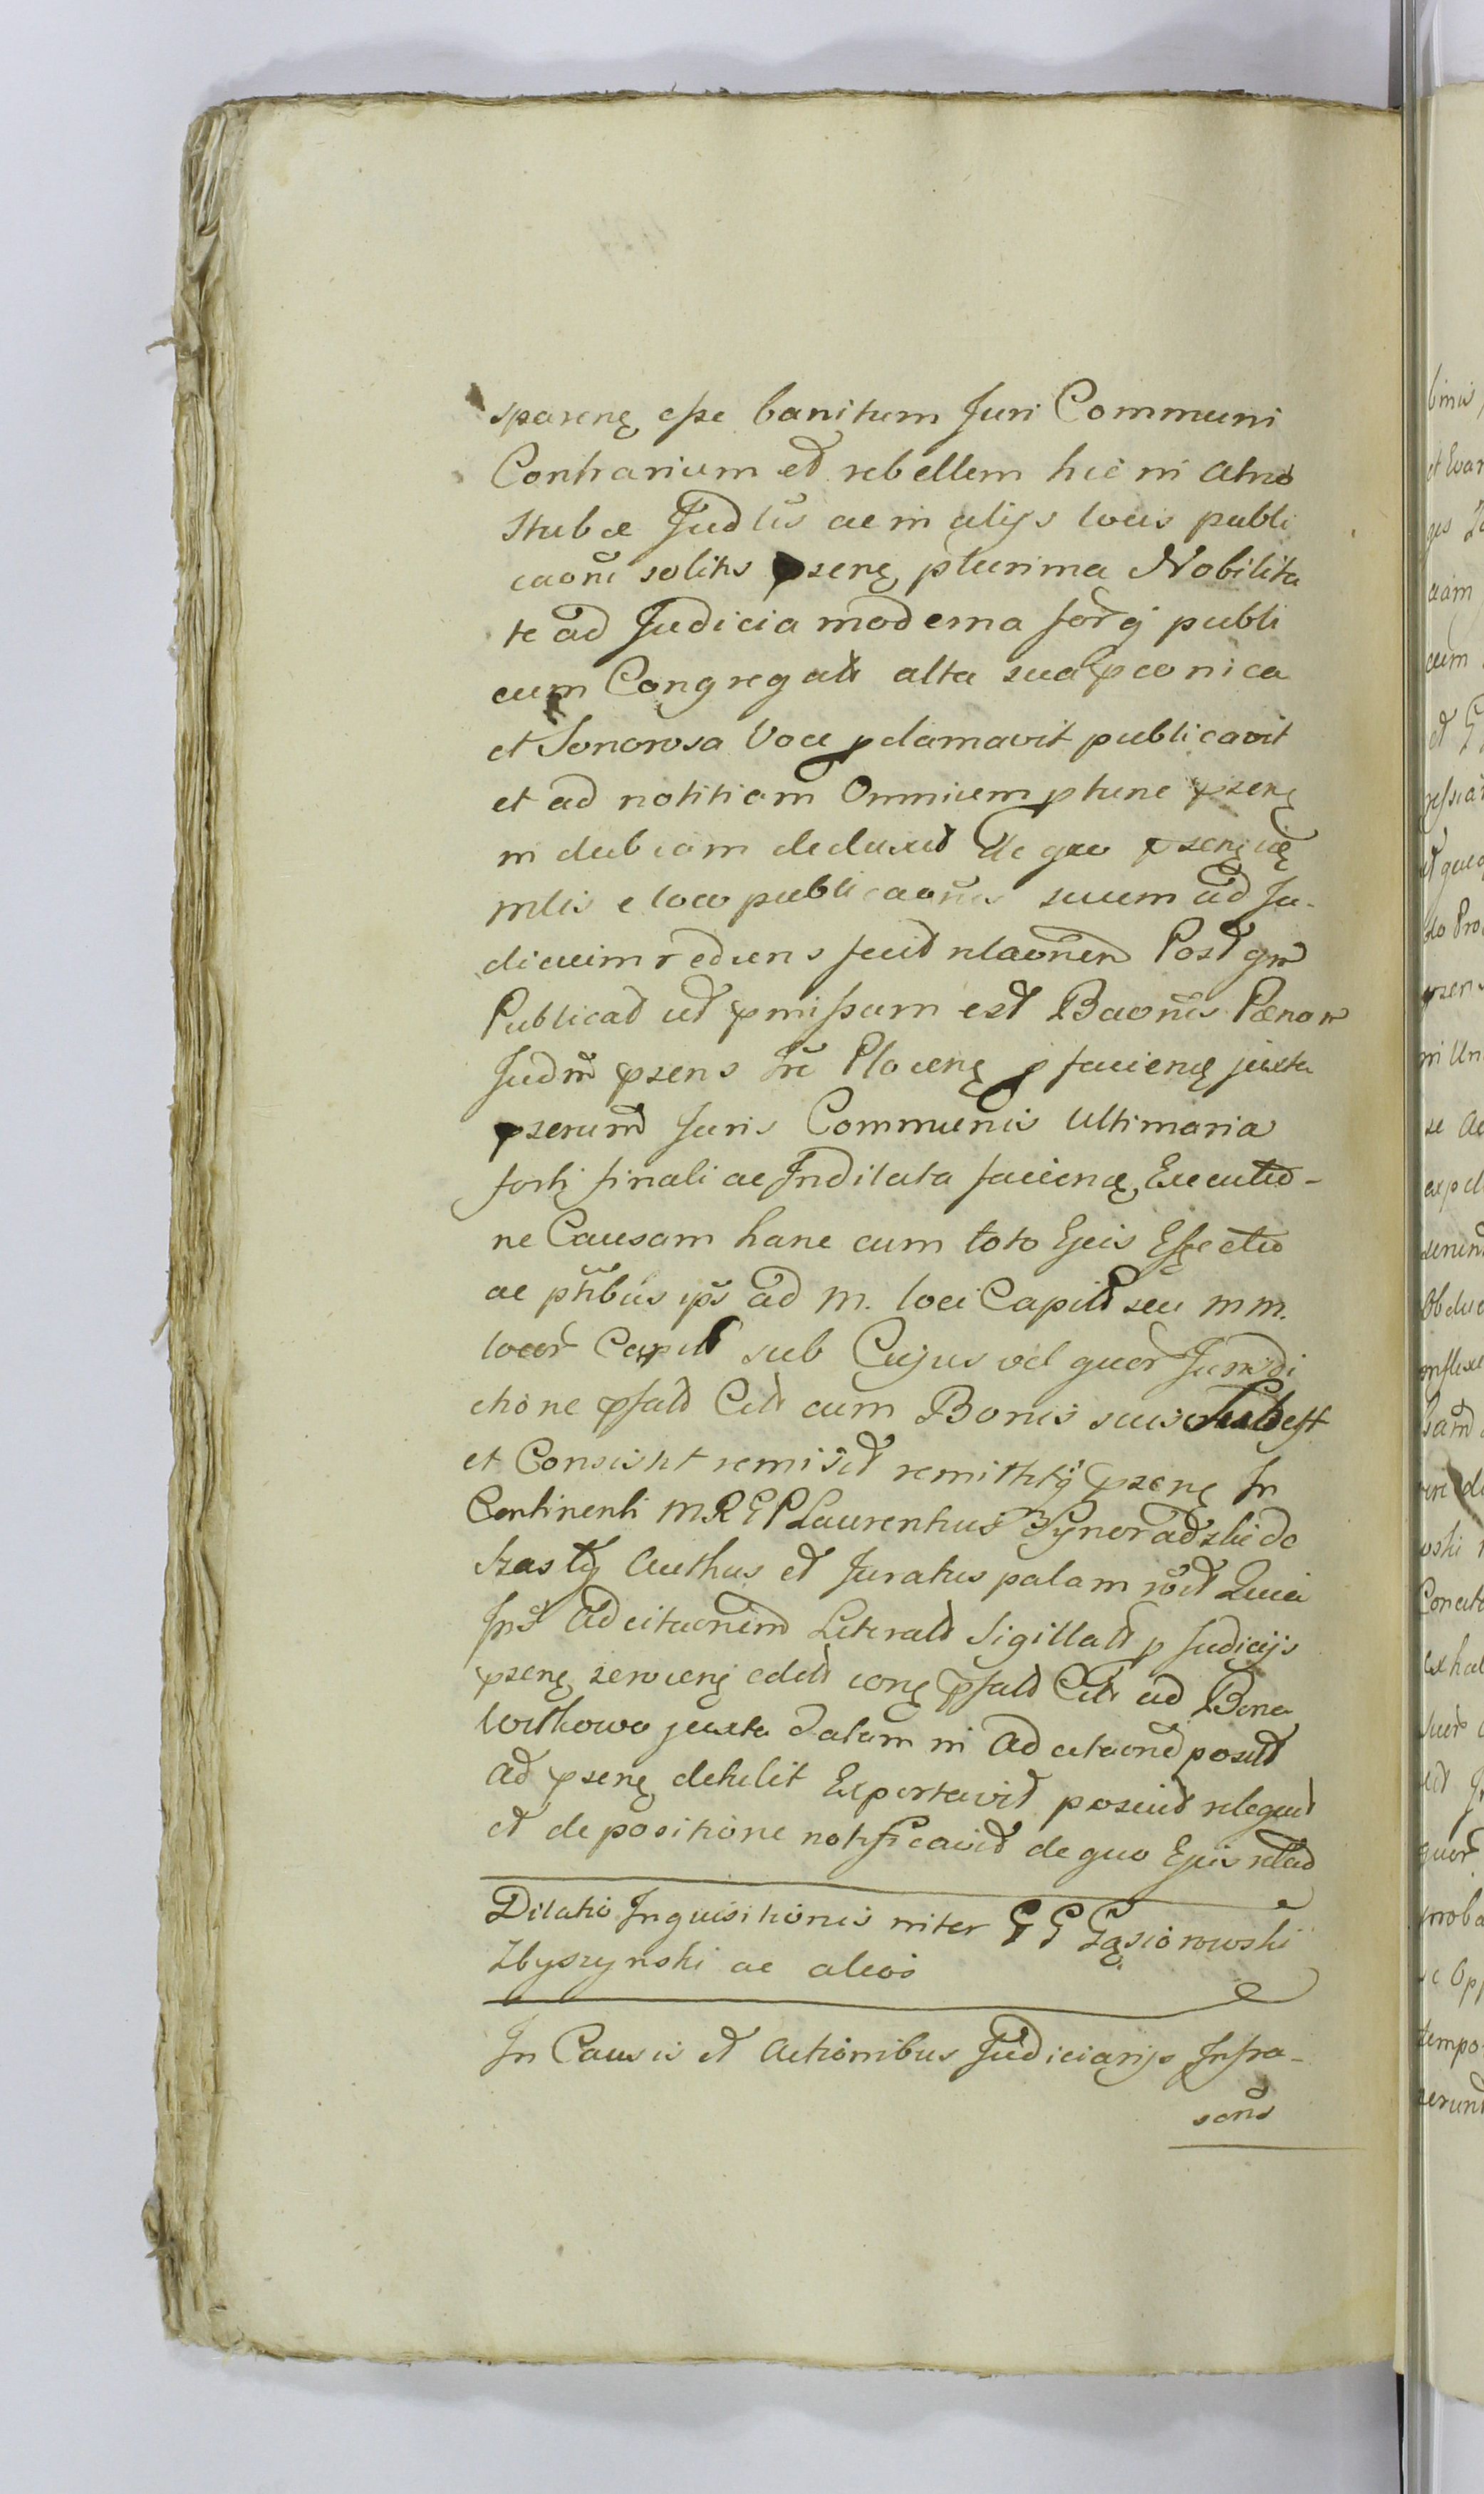 sparenę esse banitum Juri Communi
Contrarium et rebellem hic in Atrio
Stubæ Judlis ac in alijs locis publi
caoni solitis psenę plurima Nobilita
te ad Judicia moderna forq publi
cum Congregata alta sua pconica
et Sonorosa Voce pclamavit publicavit
et ad notitiam Omnium ptunc psenę
in dubiam deduxit De quo psenę
mlis e loco publicaonis suum ad Ju-
dicium rediens fecit rlaonem Post qm
Publicat ut pmissum est Baonis Pænam
Judm psens Tre Plocenę p facienę juxta
pserum Juris Communis Ultimaria
forti finali ac Indilata facienę Executio-
ne Causam hanc cum toto Ejus Effectu
ac ptibus ips ad M. loci Capit seu MM.
locor Capit sub Cujus vel quor Jurisdi
ctione pfat Cit cum Bonis suis Subest
et Consistit remisit remittitq psenę In
Continenti MRGP Laurentius Synoradzki de
Szasty Authus et Juratus palam rvit Quia
Ins Adcitaonem Literat Sigillat p Judicijs
psenę servienę edit conę pfat Cit ad Bona
Witkowo juxta datam in Adcitaone posit
ad psenę detulit Exportavit posuit reliquit
et de positione notificavit de quo Ejus rlao
Dilatio Inquisitionis inter GG Gąsiorowski
Zbyszynski ac alios
In Causis et Actionibus Judiciarijs Infra-
scris